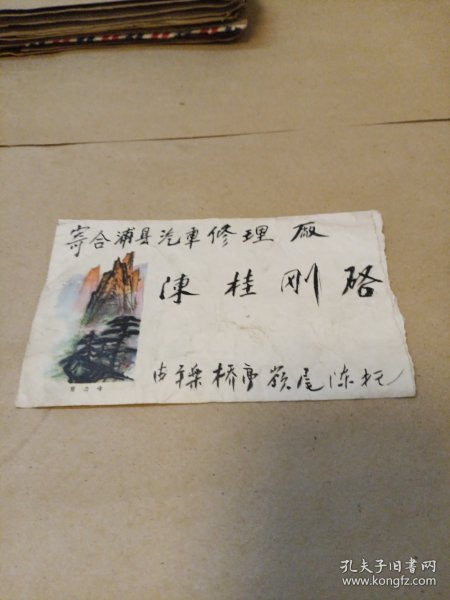 寄合浦县汽車修理厰
陳桂刚啓
由平桨桥亭岭尾陈托
孔夫子旧书网
www.kongfz.com